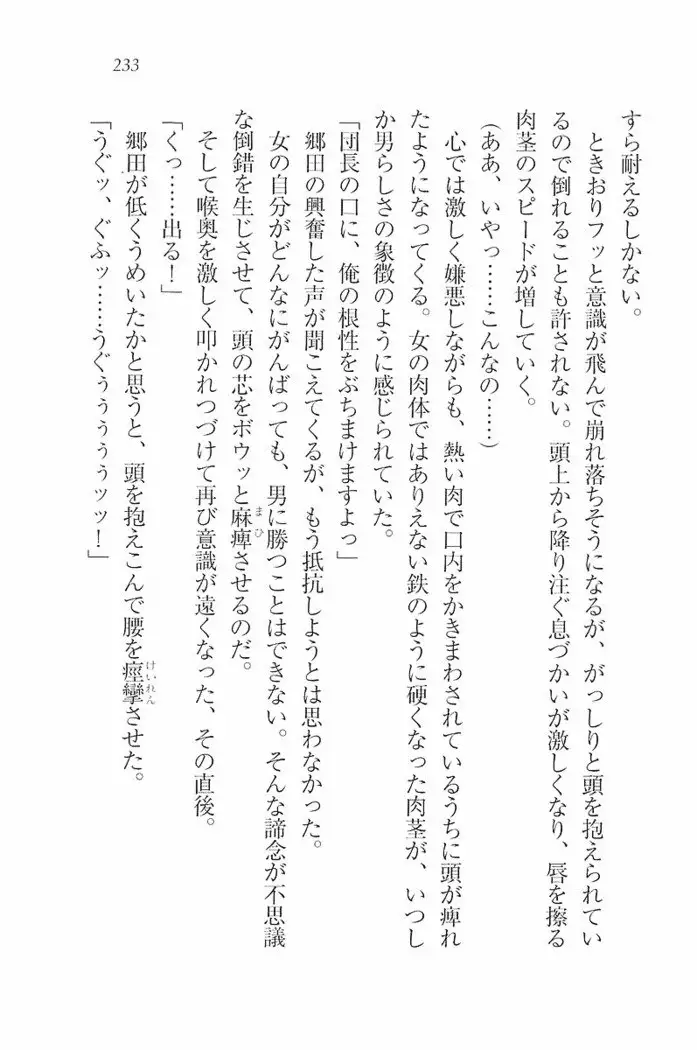 233
すら耐えるしかない。
ときおりフッと意識が飛んで崩れ落ちそうになるが、がっしりと頭を抱えられてい
るので倒れることも許されない。頭上から降り注ぐ息づかいが激しくなり、唇を擦る
肉茎のスピードが増していく。
(ああ、いやっ……こんなの……)
心では激しく嫌悪しながらも、熱い肉で口内をかきまわされているうちに頭が痺れ
たようになってくる。女の肉体ではありえない鉄のように硬くなった肉茎が、いつし
か男らしさの象徴のように感じられていた。
「団長の口に、俺の根性をぶちまけますよっ」
郷田の興奮した声が聞こえてくるが、もう抵抗しようとは思わなかった。
女の自分がどんなにがんばっても、男に勝つことはできない。そんな諦念が不思議
な倒錯を生じさせて、頭の芯をボウッと麻痺させるのだ。
そして喉奥を激しく叩かれつづけて再び意識が遠くなった、その直後。
「くっ……出る!」
郷田が低くうめいたかと思うと、頭を抱えこんで腰を痙攣させた。
「うぐッ、ぐふッ……うぐぅぅぅぅッッ!」